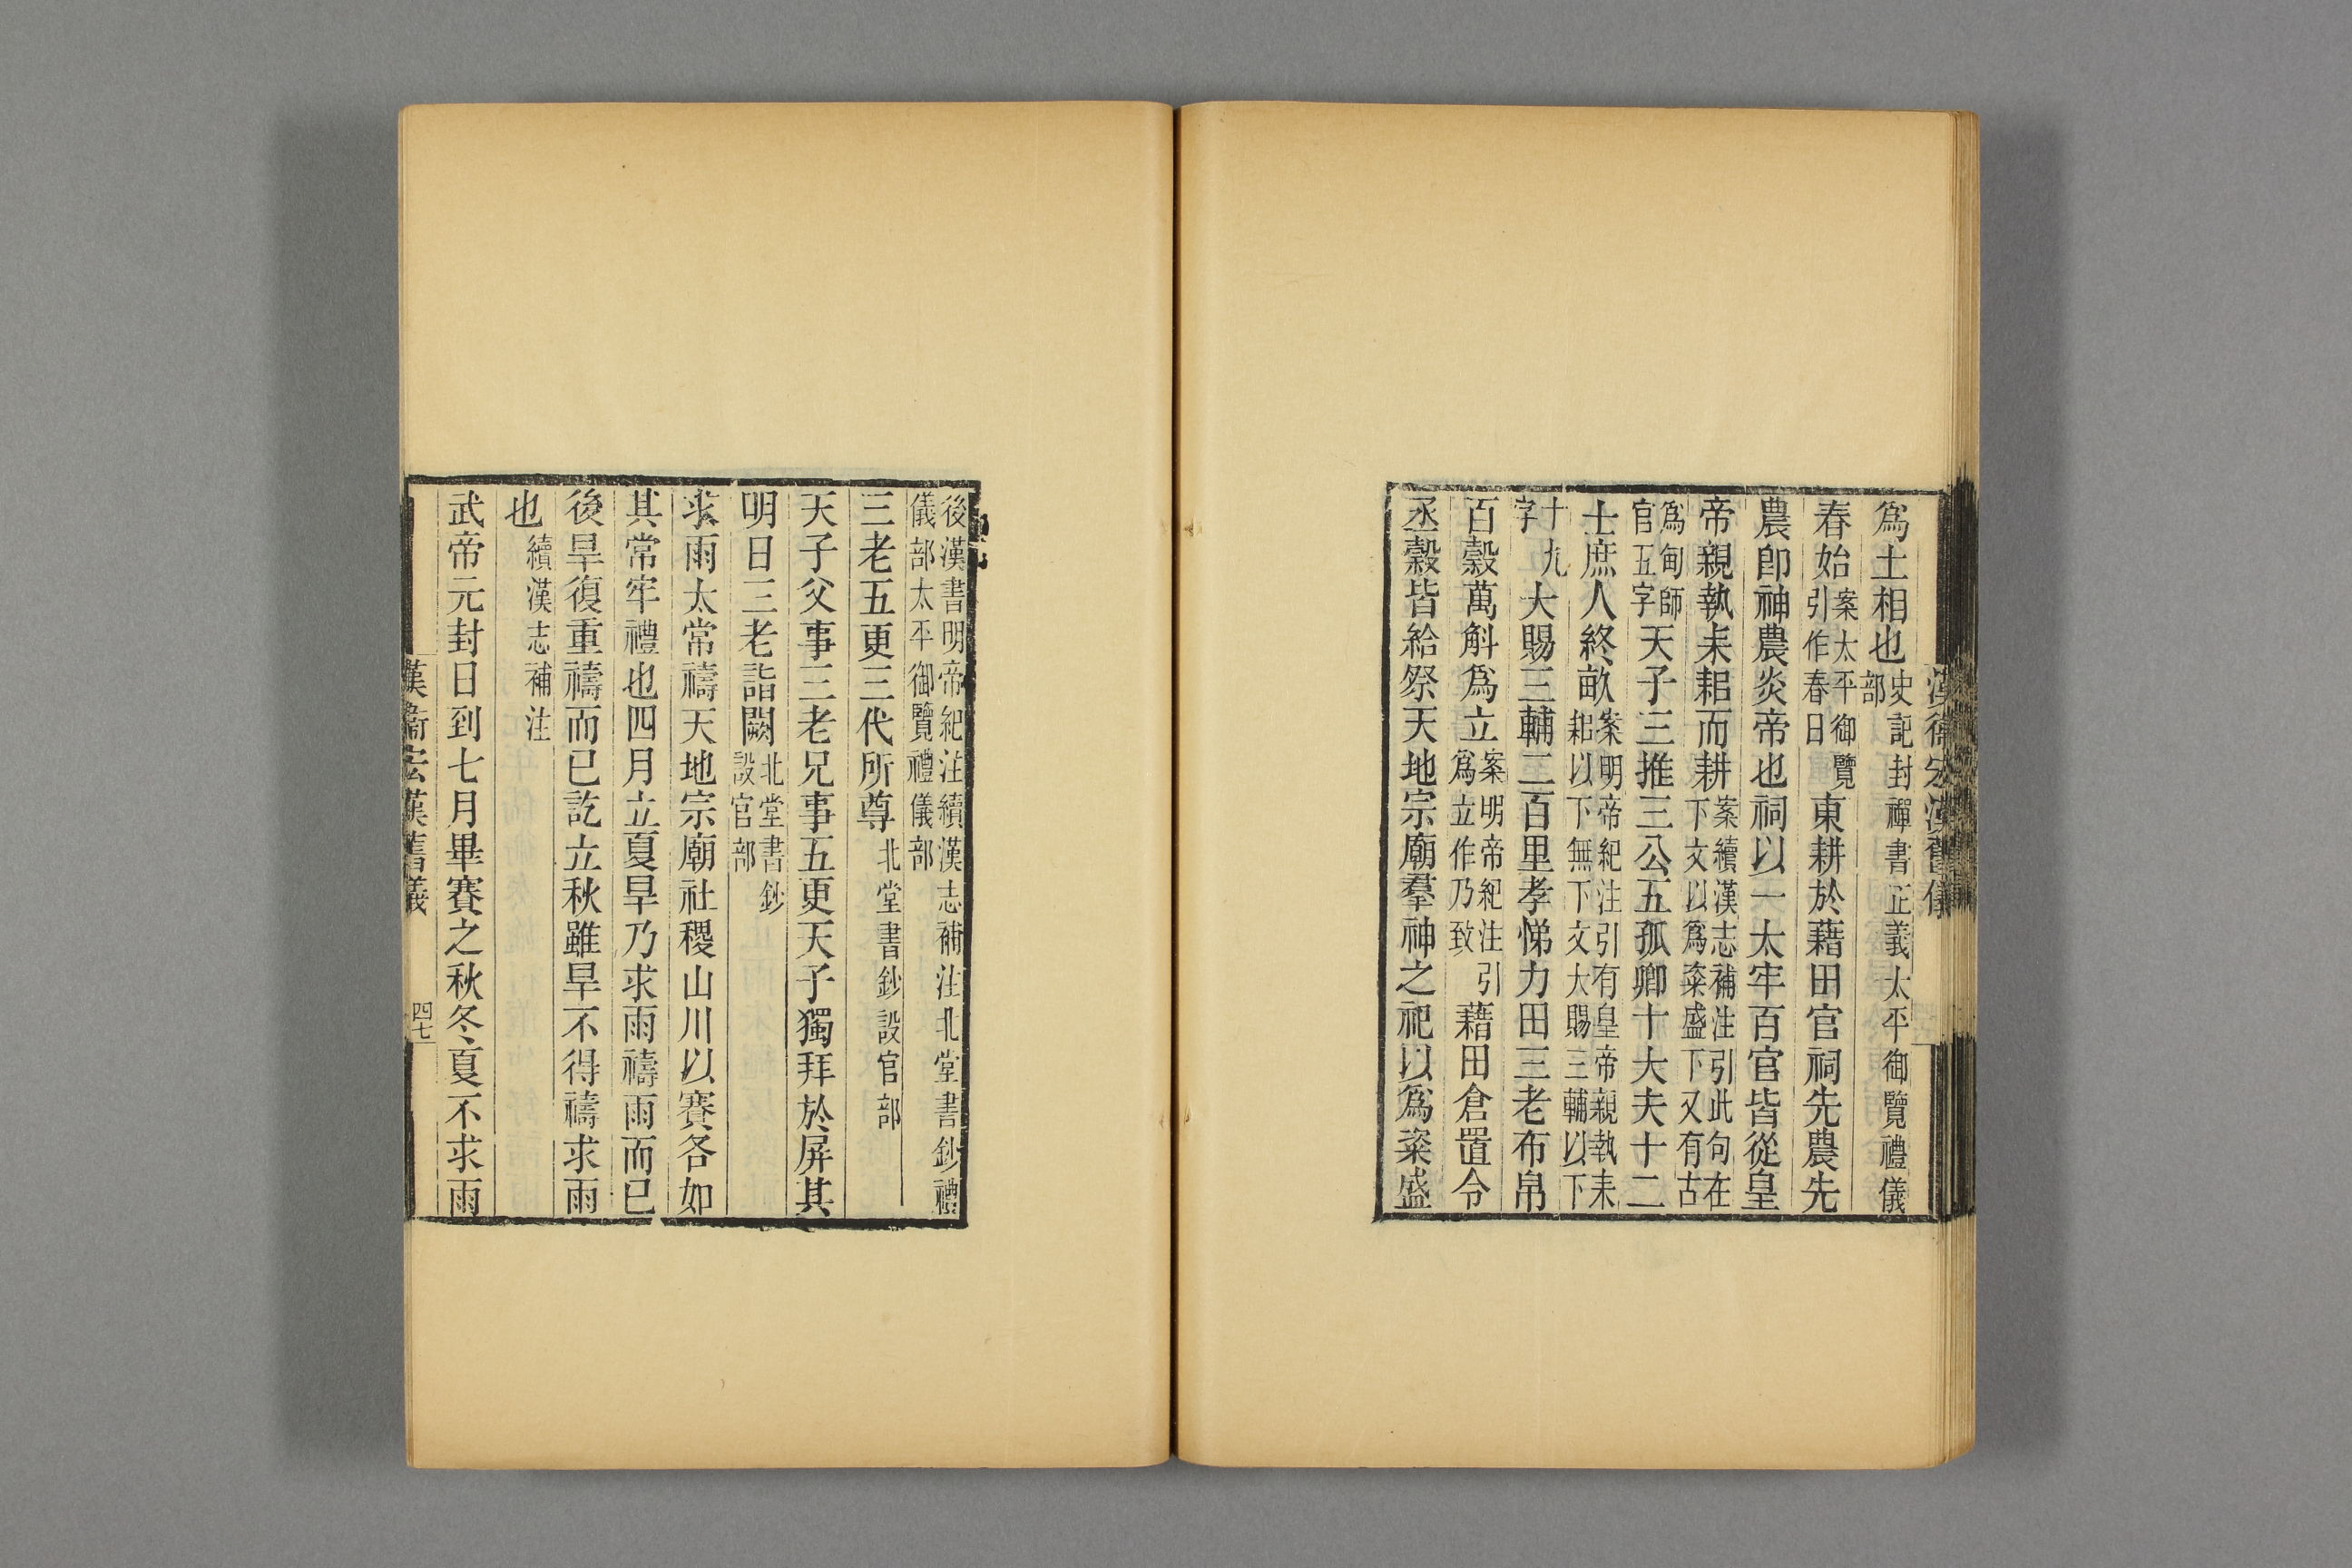 漢衞宏漢舊儀
爲土相也史記封禪書正義太平御覽禮儀部
春始案太平御覽引作春日東耕於藉田官祠先農先
農卽神農炎帝也祠以一太牢百官皆從皇
帝親執耒耜而耕案續漢志補注引此句在下文以爲粢盛下又有古
爲甸師官五字天子三推三公五孤卿十大夫十二
士庶人終畝案明帝紀注引有皇帝親執耒耜以下無下文大賜三輔以下
十九字大賜三輔二百里孝悌力田三老布帛
百穀萬斛爲立案明帝紀注引爲立作乃致藉田倉置令
丞穀皆給祭天地宗廟羣神之祀以爲粢盛
後漢書明帝紀注續漢志補注北堂書鈔禮儀部太平御覽禮儀部
三老五更三代所尊北堂書鈔設官部
天子父事三老兄事五更天子獨拜於屏其
明日三老詣闕北堂書鈔設官部
求雨太常禱天地宗廟社稷山川以賽各如
其常牢禮也四月立夏旱乃求雨禱雨而已
後旱復重禱而已訖立秋雖旱不得禱求雨
也續漢志補注
武帝元封日到七月畢賽之秋冬夏不求雨
漢衞宏漢舊儀
四七